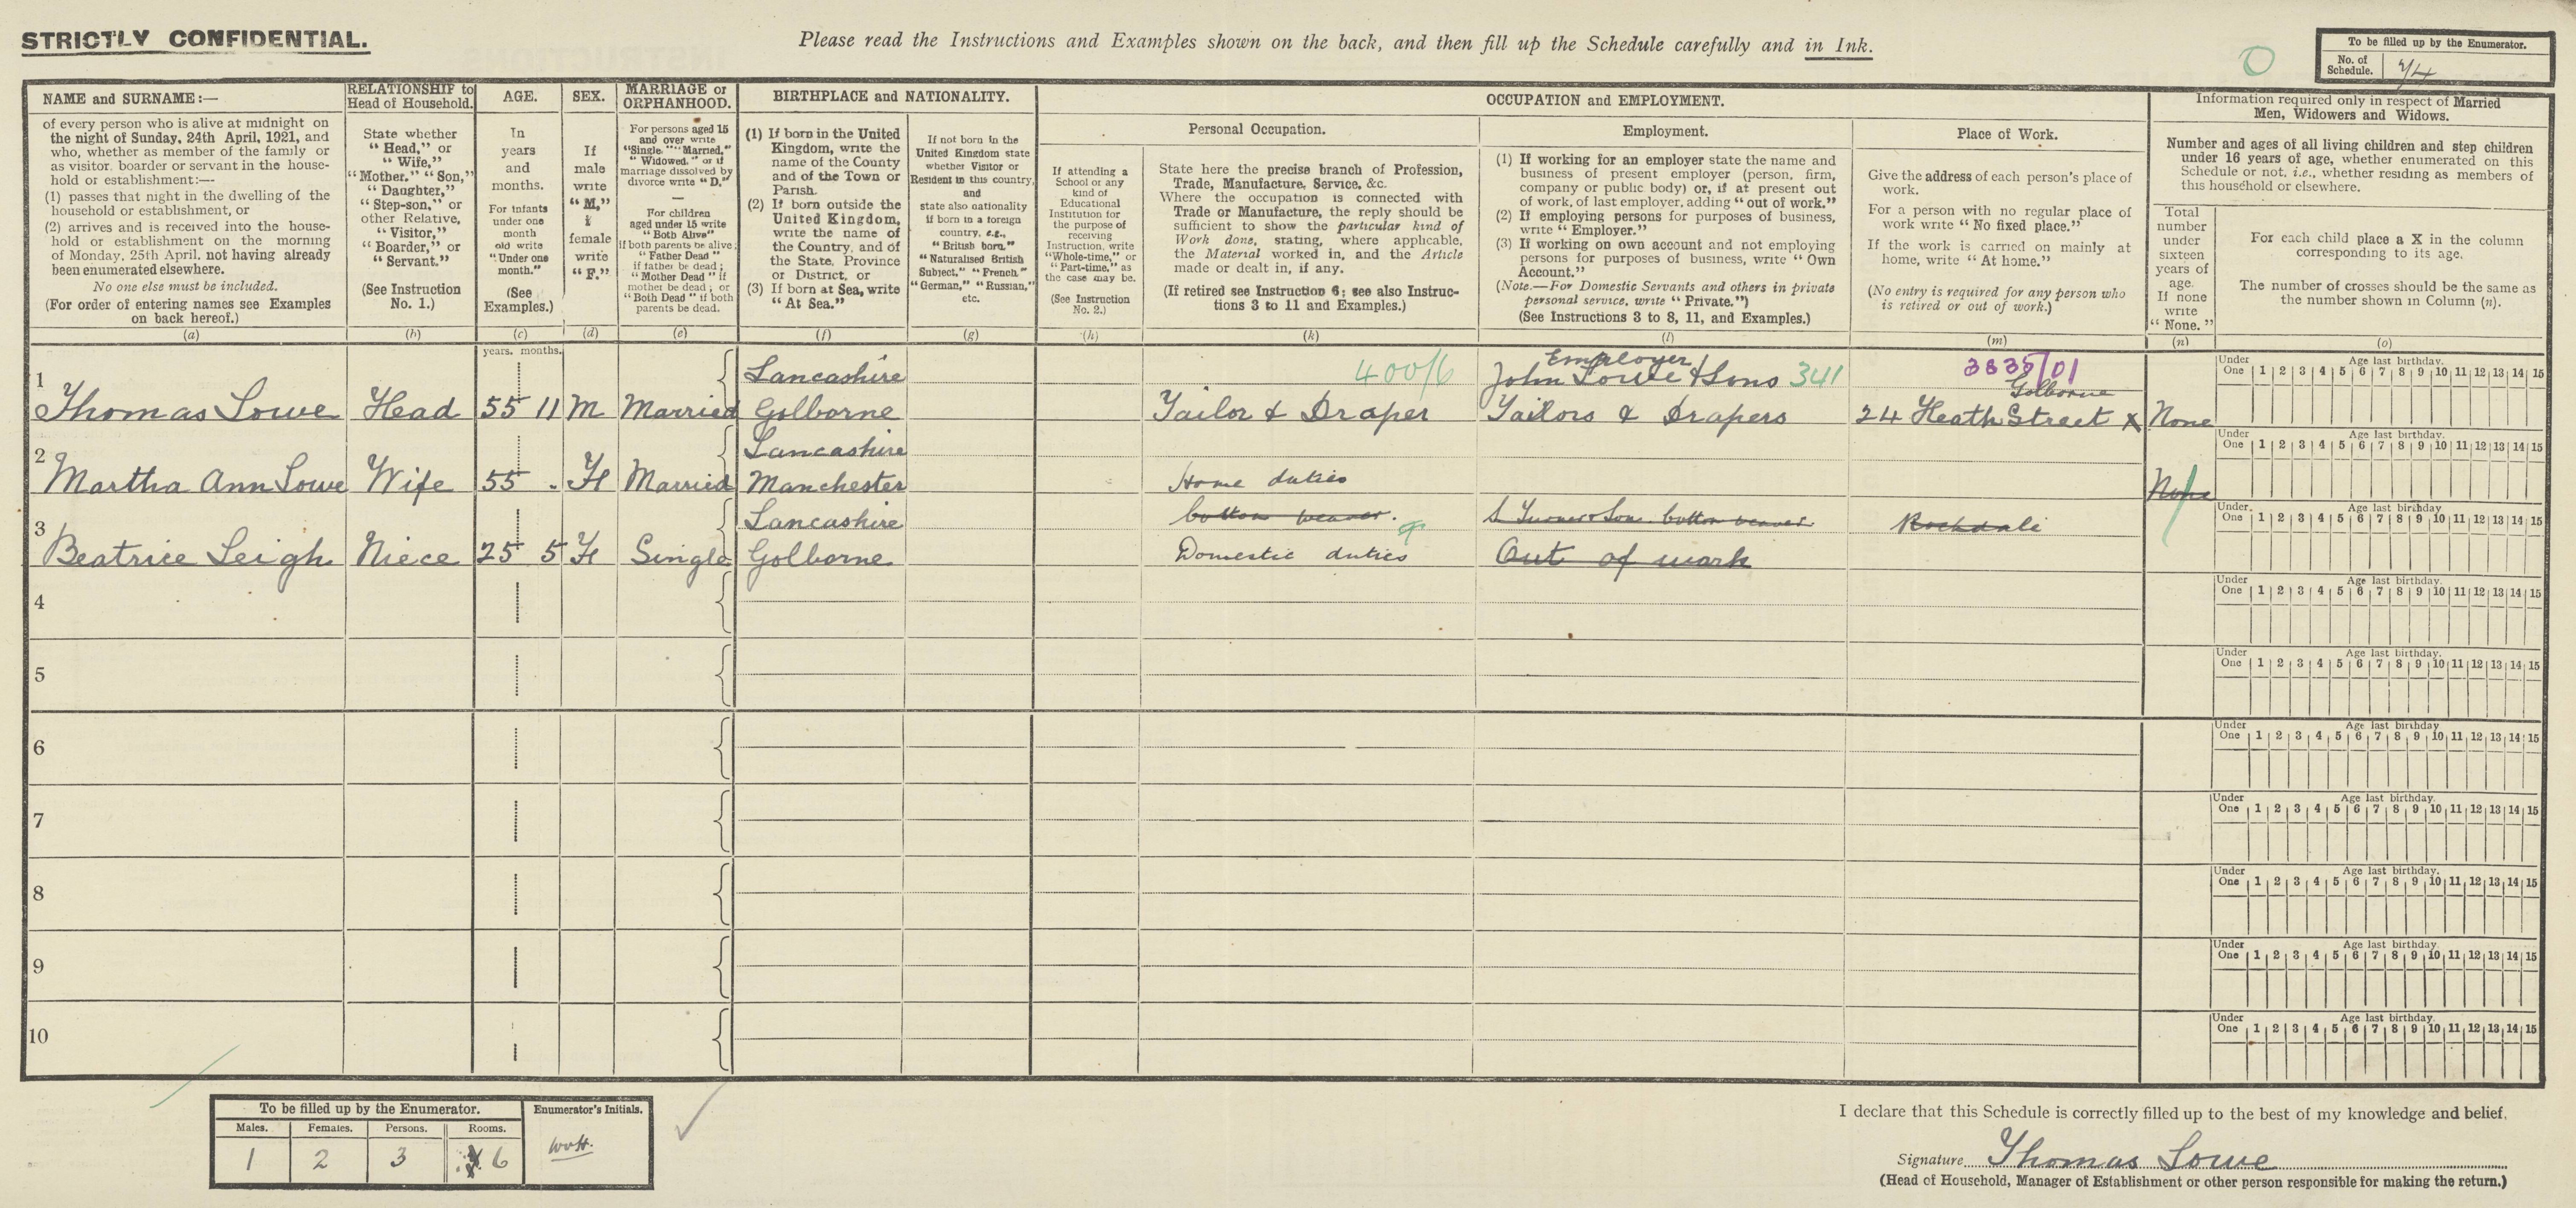 STRICTLY CONFIDENTIAL.
Please read the Instructions and Examples shown on the back, and then fill up the Schedule carefully and in Ink.
O
To be filled up by the Enumerator.
No. of
Schedule.
NAME and SURNAME:—
of every person who is alive at midnight on
the night of Sunday, 24th April, 1921, and
who, whether as member of the family or
as visitor, boarder or servant in the house-
hold or establishment:—
(1) passes that night in the dwelling of the
household or establishment, or
(2) arrives and is received into the house-
hold or establishment on the morning
of Monday, 25th April, not having already
been enumerated elsewhere.
No one else must be included.
(For order of entering names see Examples
on back hereof.)
(a)
RELATIONSHIP to
Head of Household.
State whether
"Head," or
"Wife,"
"Mother." "Son,"
"Daughter,"
"Step-son," or
other Relative,
"Visitor,"
"Boarder," or
"Servant."
(See Instruction
No. 1.)
(b)
AGE.
In
years
and
months.
For infants
under one
month
old write
"Under one
month."
(See
Examples.)
(c)
SEX.
If
male
write
"M,"
if
female
write
"F."
(d)
MARRIAGE or
ORPHANHOOD.
For persons aged 15
and over write
"Single," "Married,"
"Widowed," or if
marriage dissolved by
divorce write "D."
—
For children
aged under 15 write
"Both Alive"
if both parents be alive;
"Father Dead"
if father be dead;
"Mother Dead" if
mother be dead; or
"Both Dead" if both
parents be dead.
(e)
BIRTHPLACE and NATIONALITY.
(1) If born in the United
Kingdom, write the
name of the County
and of the Town or
Parish.
(2) If born outside the
United Kingdom,
write the name of
the Country, and of
the State, Province
or District, or
(3) If born at Sea, write
"At Sea."
(f)
If not born in the
United Kingdom state
whether Visitor or
Resident in this country,
and
state also nationality
if born in a foreign
country, e.g.,
"British born,"
"Naturalised British
Subject," "French"
"German," "Russian,"
etc.
(g)
OCCUPATION and EMPLOYMENT.
If attending a
School or any
kind of
Educational
Institution for
the purpose of
receiving
Instruction, write
"Whole-time," or
"Part-time," as
the case may be.
(See Instruction
No. 2.)
(h)
Personal Occupation.
State here the precise branch of Profession,
Trade, Manufacture, Service, &c.
Where the occupation is connected with
Trade or Manufacture, the reply should be
sufficient to show the particular kind of
Work done, stating, where applicable,
the Material worked in, and the Article
made or dealt in, if any.
(If retired see Instruction 6; see also Instruc-
tions 3 to 11 and Examples.)
(k)
Employment.
(1) If working for an employer state the name and
business of present employer (person, firm,
company or public body) or, if at present out
of work, of last employer, adding "out of work."
(2) If employing persons for purposes of business,
write "Employer."
(3) If working on own account and not employing
persons for purposes of business, write "Own
Account."
(Note.—For Domestic Servants and others in private
personal service, write "Private.")
(See Instructions 3 to 8, 11, and Examples.)
(l)
Place of Work.
Give the address of each person's place of
work.
For a person with no regular place of
work write "No fixed place."
If the work is carried on mainly at
home, write "At home."
(No entry is required for any person who
is retired or out of work.)
(m)
Information required only in respect of Married
Men, Widowers and Widows.
Number and ages of all living children and step children
under 16 years of age, whether enumerated on this
Schedule or not, i.e., whether residing as members of
this household or elsewhere.
Total
number
under
sixteen
years of
age.
If none
write
"None."
(n)
For each child place a X in the column
corresponding to its age.
The number of crosses should be the same as
the number shown in Column (n).
(o)
years. months.
Employer
Lancashire 400/6 John Lowe & Sons 341 3835/01
Golborne
1 Thomas Lowe Head 55 11 M Married Golborne Tailor & Draper Tailors & Drapers 24 Heath Street x None
Under One Age last birthday. 1 2 3 4 5 6 7 8 9 10 11 12 13 14 15
Lancashire
2 Martha Ann Lowe Wife 55 - F Married Manchester Home duties None
Under One Age last birthday. 1 2 3 4 5 6 7 8 9 10 11 12 13 14 15
Lancashire cotton weaver. S Turner & Son. cotton weaver Rochdale
3 Beatrice Leigh Niece 25 5 F Single Golborne Domestic duties Out of work
Under One Age last birthday 1 2 3 4 5 6 7 8 9 10 11 12 13 14 15
4
Under One Age last birthday. 1 2 3 4 5 6 7 8 9 10 11 12 13 14 15
5
Under One Age last birthday. 1 2 3 4 5 6 7 8 9 10 11 12 13 14 15
6
Under One Age last birthday 1 2 3 4 5 6 7 8 9 10 11 12 13 14 15
7
Under One Age last birthday. 1 2 3 4 5 6 7 8 9 10 11 12 13 14 15
8
Under One Age last birthday. 1 2 3 4 5 6 7 8 9 10 11 12 13 14 15
9
Under One Age last birthday. 1 2 3 4 5 6 7 8 9 10 11 12 13 14 15
10
Under One Age last birthday. 1 2 3 4 5 6 7 8 9 10 11 12 13 14 15
To be filled up by the Enumerator.
Males. Females. Persons. Rooms.
1 2 3 6
Enumerator's Initials.
I declare that this Schedule is correctly filled up to the best of my knowledge and belief.
Signature Thomas Lowe
(Head of Household, Manager of Establishment or other person responsible for making the return.)